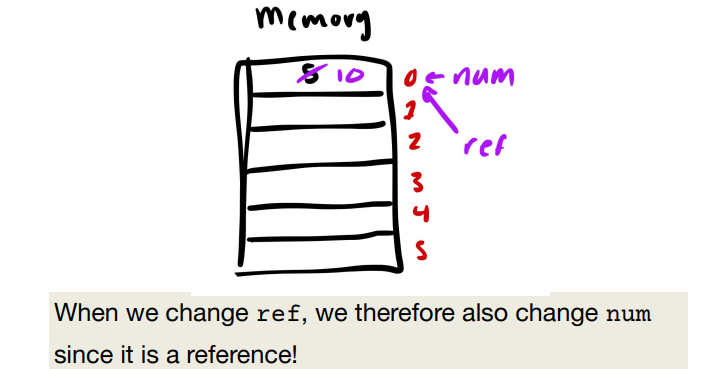 memory
5 10 0 ← num
1
2 ref
3
4
5
When we change ref, we therefore also change num
since it is a reference!